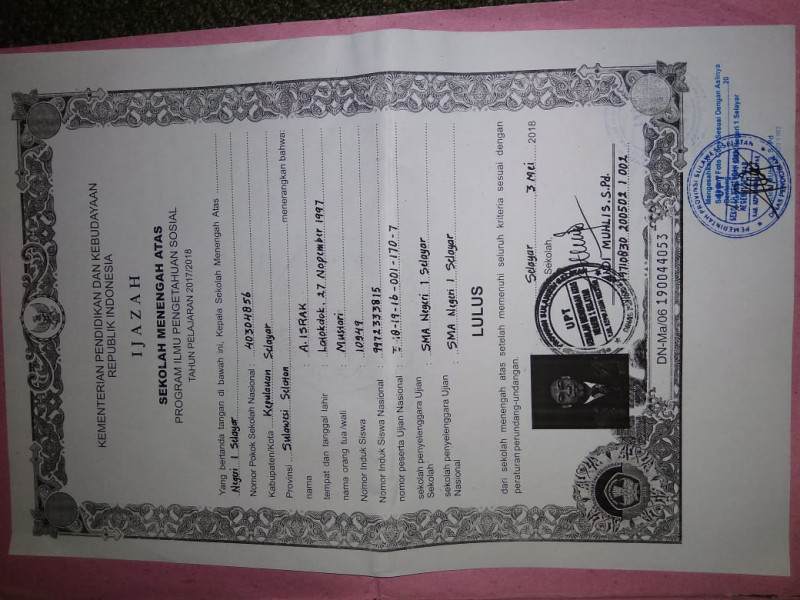 KEMENTERIAN PENDIDIKAN DAN KEBUDAYAAN
REPUBLIK INDONESIA
IJAZAH
SEKOLAH MENENGAH ATAS
PROGRAM ILMU PENGETAHUAN SOSIAL
TAHUN PELAJARAN 2017/2018
Yang bertanda tangan di bawah ini, Kepala Sekolah Menengah Atas
Negeri 1 Selayar
Nomor Pokok Sekolah Nasional : 40304856
Kabupaten/Kota Kepulauan Selayar
Provinsi Sulawesi Selatan menerangkan bahwa:
nama : A. ISRAK
tempat dan tanggal lahir : Lalokdok, 27 Nopember 1997
nama orang tua/wali : Musliari
Nomor Induk Siswa : 10949
Nomor Induk Siswa Nasional : 9972333815
nomor peserta Ujian Nasional : 3-18-19-16-001-170-7
sekolah penyelenggara Ujian Sekolah : SMA Negeri 1 Selayar
sekolah penyelenggara Ujian Nasional : SMA Negeri 1 Selayar
LULUS
dari sekolah menengah atas setelah memenuhi seluruh kriteria sesuai dengan
peraturan perundang-undangan.
Selayar, 3 Mei 2018
Sekolah,
UPT
MUHLIS, S.Pd.
19710830 200502 1 002
DN-Ma/06 190044053
Mengesahkan
Foto Copy Sesuai Dengan Aslinya
20
1 Selayar
PEMERINTAH PROVINSI SULAWESI SELATAN